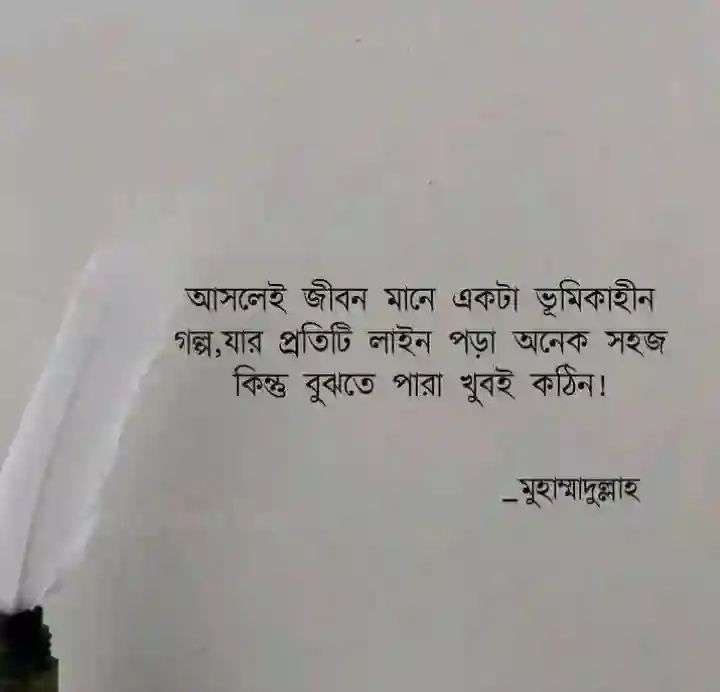 আসলেই জীবন মানে একটা ভূমিকাহীন
গল্প,যার প্রতিটি লাইন পড়া অনেক সহজ
কিন্তু বুঝতে পারা খুবই কঠিন!
_মুহাম্মাদুল্লাহ